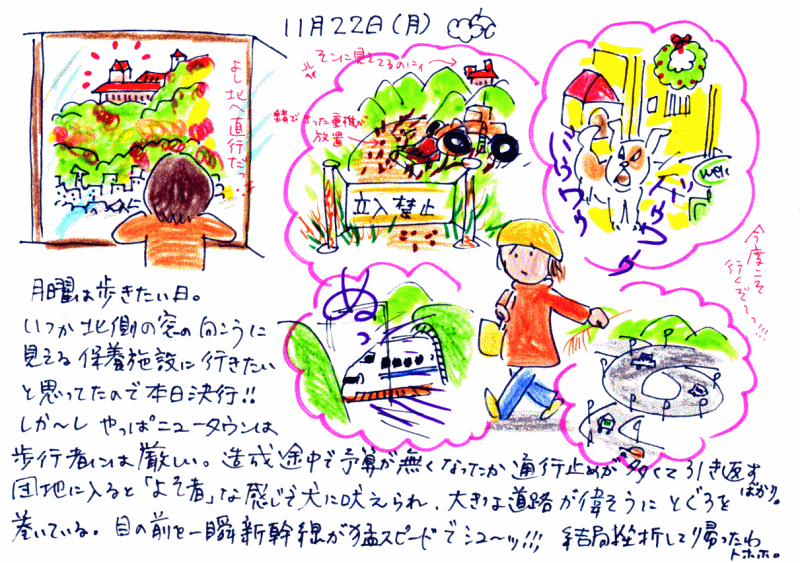 11月22日(月)
よし北へ直行だっ!!
そこに見えてるのにィ
錆びきった重機が
放置
立入禁止
ワンワン
ワウワウ
welc
今度こそ
行くぞーっ!!!
ぬっ
P
P
P
P
P
P
月曜は歩きたい日。
いつか北側の窓の向こうに
見える保養施設に行きたい
と思ってたので本日決行!!
しか〜し やっぱニュータウンは
歩行者には厳しい。造成途中で予算が無くなったか通行止めが多くて引き返すばかり。
団地に入ると「よそ者」な感じで犬に吠えられ、大きな道路が偉そうにとぐろを
巻いている。目の前を一瞬新幹線が猛スピードでシューッ!!! 結局挫折して帰ったわ
トホホ。